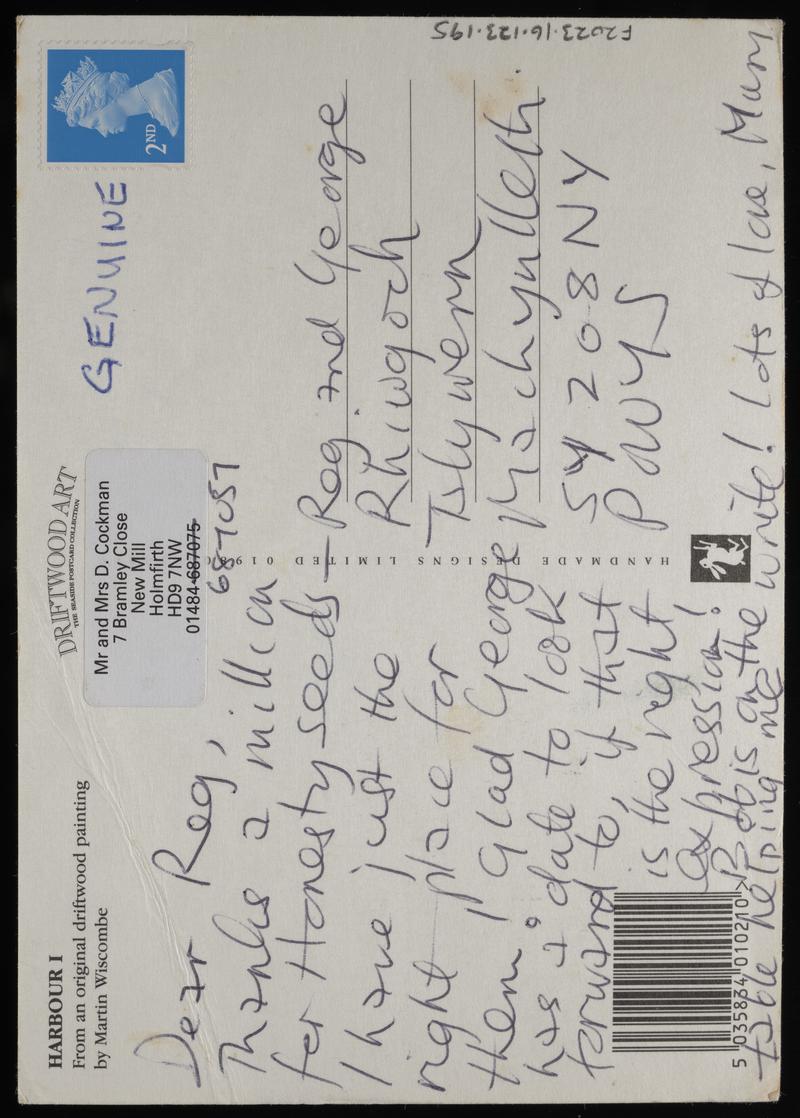 F2023.16.123.195
HARBOUR I
From an original driftwood painting
by Martin Wiscombe
DRIFTWOOD ART
THE SEASIDE POSTCARD COLLECTION
Mr and Mrs D. Cockman
7 Bramley Close
New Mill
Holmfirth
HD9 7NW
01484-687075
687057
GENUINE
2ND
Dear Reg,
Thanks a million
for Honesty seeds –
I have just the
right place for
them! Glad George
has a 'date' to look
forward to, if that
is the right
expression!
Bob is on the
table helping me write! Lots of love, Mum
Reg and George
Rhiwgoch
Islywern
Machynlleth
SY20 8NY
POWYS
HANDMADE DESIGNS LIMITED
5 035834 010210 >